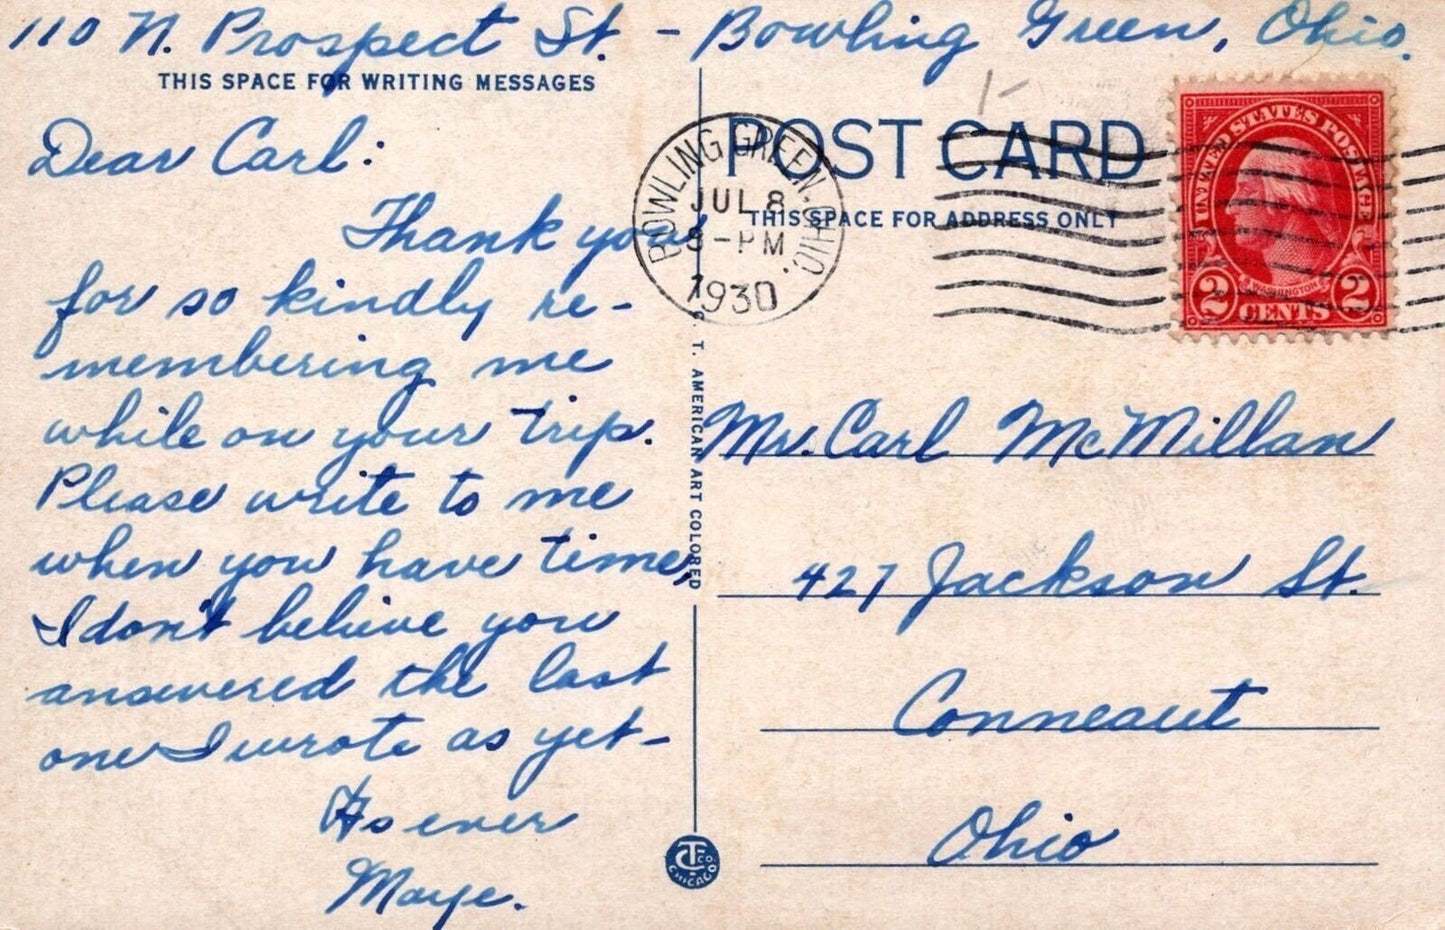 110 N. Prospect St. - Bowling Green, Ohio.
THIS SPACE FOR WRITING MESSAGES
Dear Carl:
Thank you
for so kindly re-
membering me
while on your trip.
Please write to me
when you have time,
I don't believe you
answered the last
one I wrote as yet-
As ever
Maye.
POST CARD
THIS SPACE FOR ADDRESS ONLY
BOWLING GREEN, OHIO.
JUL 8
8-PM
1930
UNITED STATES POSTAGE
WASHINGTON
2 CENTS 2
C. T. AMERICAN ART COLORED
Mr. Carl McMillan
427 Jackson St.
Conneaut
Ohio
CT CO.
CHICAGO